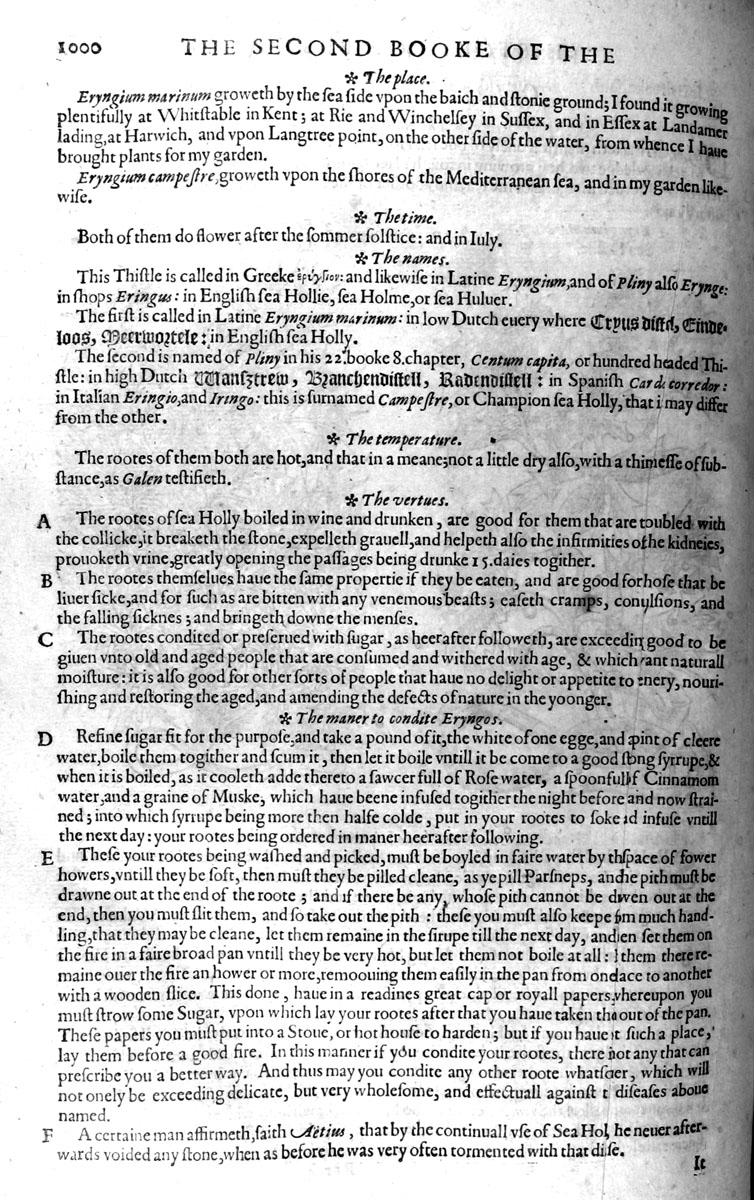 1000 THE SECOND BOOKE OF THE
✲ The place.
Eryngium marinum groweth by the ſea ſide vpon the baich and ſtonie ground; I found it growing
plentifully at Whitſtable in Kent; at Rie and Winchelſey in Suſſex, and in Eſſex at Landamer
lading, at Harwich, and vpon Langtree point, on the other ſide of the water, from whence I haue
brought plants for my garden.
Eryngium campeſtre, groweth vpon the ſhores of the Mediterranean ſea, and in my garden like-
wiſe.
✲ The time.
Both of them do flower after the ſommer ſolſtice: and in Iuly.
✲ The names.
This Thiſtle is called in Greeke ἠρύγγιον: and likewiſe in Latine Eryngium, and of Pliny alſo Erynge:
in ſhops Eringus: in Engliſh ſea Hollie, ſea Holme, or ſea Huluer.
The firſt is called in Latine Eryngium marinum: in low Dutch euery where Crpus diſtel, Einde-
loos, Meerwortele: in Engliſh ſea Holly.
The ſecond is named of Pliny in his 22. booke 8. chapter, Centum capita, or hundred headed Thi-
ſtle: in high Dutch Manſztrew, Branchendiſtell, Radendiſtell: in Spaniſh Cardo corredor:
in Italian Eringio, and Iringo: this is ſurnamed Campeſtre, or Champion ſea Holly, that it may differ
from the other.
✲ The temperature.
The rootes of them both are hot, and that in a meane; not a little dry alſo, with a thinneſſe of ſub-
ſtance, as Galen teſtifieth.
✲ The vertues.
A The rootes of ſea Holly boiled in wine and drunken, are good for them that are toubled with
the collicke, it breaketh the ſtone, expelleth grauell, and helpeth alſo the infirmities of the kidneies,
prouoketh vrine, greatly opening the paſſages being drunke 15. daies togither.
B The rootes themſelues haue the ſame propertie if they be eaten, and are good for thoſe that be
liuer ſicke, and for ſuch as are bitten with any venemous beaſts; eaſeth cramps, conulſions, and
the falling ſicknes; and bringeth downe the menſes.
C The rootes condited or preſerued with ſugar, as heerafter followeth, are exceeding good to be
giuen vnto old and aged people that are conſumed and withered with age, & which want naturall
moiſture: it is alſo good for other ſorts of people that haue no delight or appetite to venery, nouri-
ſhing and reſtoring the aged, and amending the defects of nature in the yoonger.
✲ The maner to condite Eryngos.
D Refine ſugar fit for the purpoſe, and take a pound of it, the white of one egge, and a pint of cleere
water, boile them togither and ſcum it, then let it boile vntill it be come to a good ſtrong ſyrrupe, &
when it is boiled, as it cooleth adde thereto a ſawcer full of Roſe water, a ſpoonfull of Cinnamom
water, and a graine of Muske, which haue beene infuſed togither the night before and now ſtrai-
ned; into which ſyrrupe being more then halfe colde, put in your rootes to ſoke and infuſe vntill
the next day: your rootes being ordered in maner heerafter following.
E Theſe your rootes being waſhed and picked, muſt be boyled in faire water by the ſpace of fower
howers, vntill they be ſoft, then muſt they be pilled cleane, as ye pill Parſneps, and the pith muſt be
drawne out at the end of the roote; and if there be any, whoſe pith cannot be drawen out at the
end, then you muſt ſlit them, and ſo take out the pith: theſe you muſt alſo keepe from much hand-
ling, that they may be cleane, let them remaine in the ſirupe till the next day, and then ſet them on
the fire in a faire broad pan vntill they be very hot, but let them not boile at all: let them there re-
maine ouer the fire an hower or more, remoouing them eaſily in the pan from one place to another
with a wooden ſlice. This done, haue in a readines great cap or royall papers, whereupon you
muſt ſtrow ſome Sugar, vpon which lay your rootes after that you haue taken them out of the pan.
Theſe papers you muſt put into a Stoue, or hot houſe to harden; but if you haue not ſuch a place,
lay them before a good fire. In this manner if you condite your rootes, there is not any that can
preſcribe you a better way. And thus may you condite any other roote whatſoeuer, which will
not onely be exceeding delicate, but very wholeſome, and effectuall againſt the diſeaſes aboue
named.
F A certaine man affirmeth, ſaith Aëtius, that by the continuall vſe of Sea Holly, he neuer after-
wards voided any ſtone, when as before he was very often tormented with that diſeaſe.
It